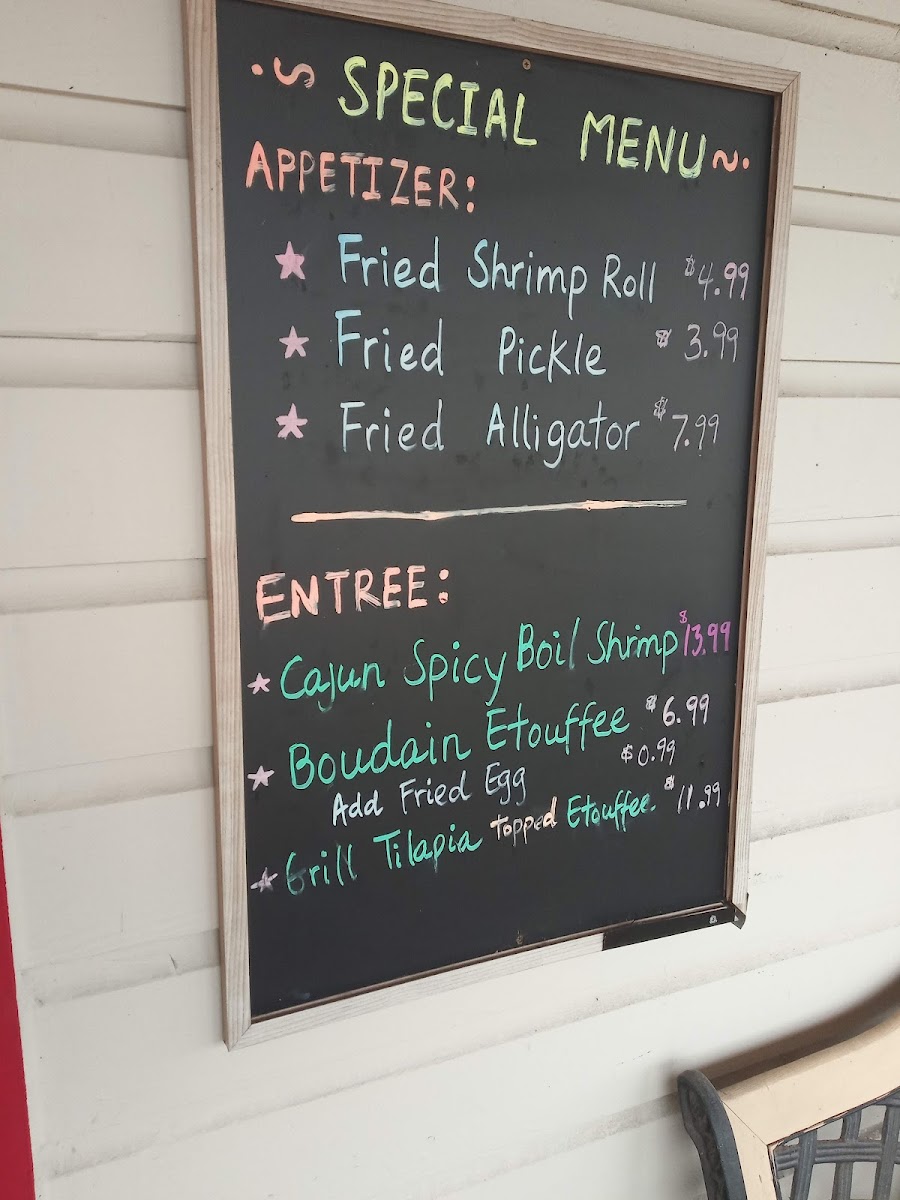 SPECIAL MENU
APPETIZER:
Fried Shrimp Roll $4.99
Fried Pickle $3.99
Fried Alligator $7.99
ENTREE:
Cajun Spicy Boil Shrimp $13.99
Boudain Etouffee $6.99
Add Fried Egg $0.99
Grill Tilapia topped Etouffee. $11.99